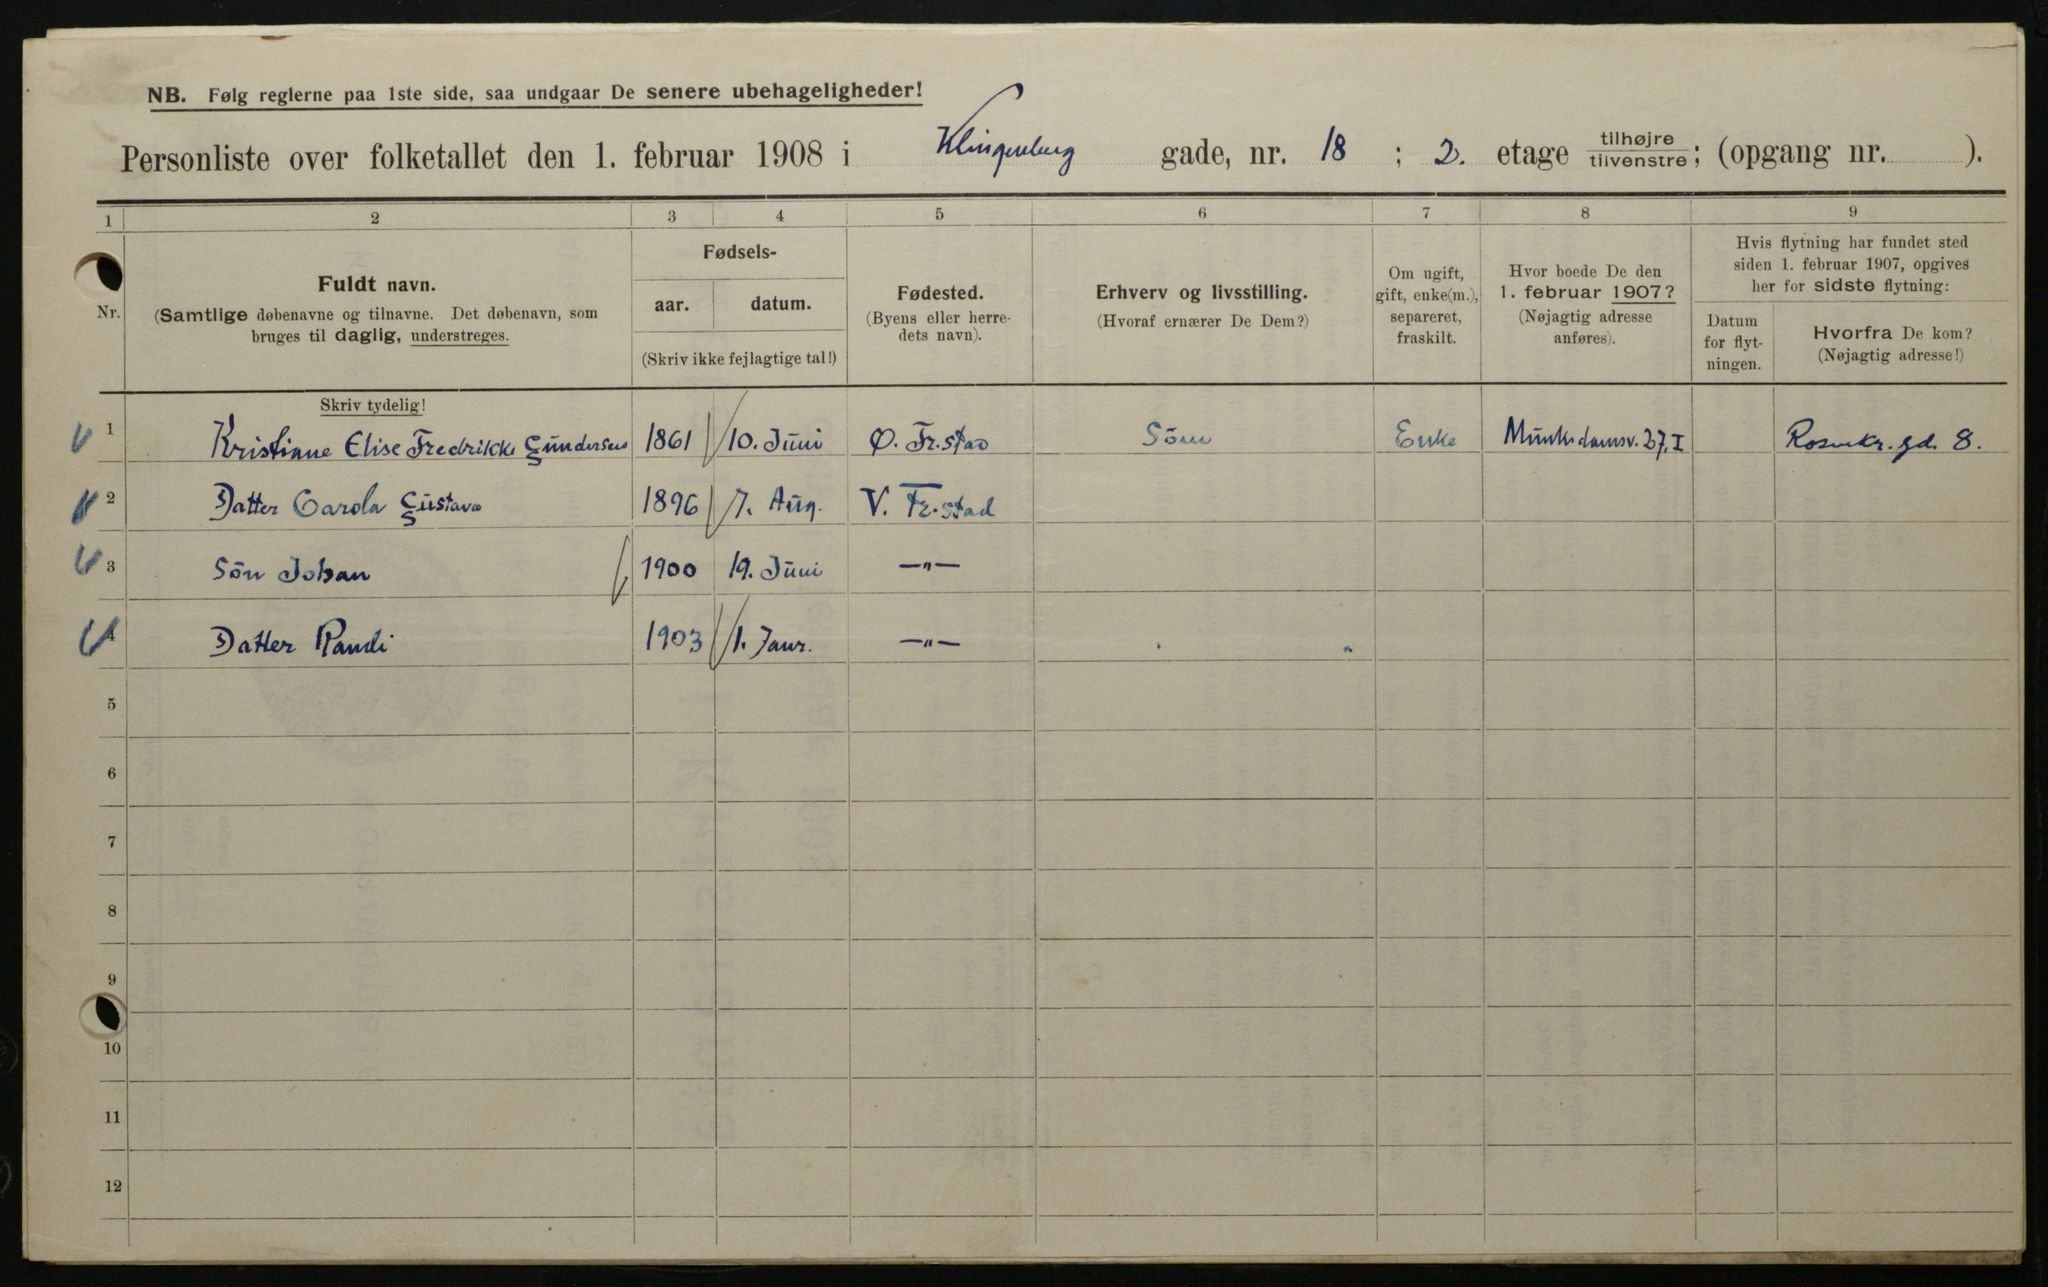 NB. Følg reglerne paa 1ste side, saa undgaar De senere ubehageligheder!
Personliste over folketallet den 1. februar 1908 i Klingenberg gade, nr. 18 ; 2. etage tilhøjre/tilvenstre; (opgang nr. ).
1 2 3 4 5 6 7 8 9
Nr.
Fuldt navn.
(Samtlige døbenavne og tilnavne. Det døbenavn, som
bruges til daglig, understreges.
Fødsels-
aar. datum.
(Skriv ikke fejlagtige tal!)
Fødested.
(Byens eller herre-
dets navn).
Erhverv og livsstilling.
(Hvoraf ernærer De Dem?)
Om ugift,
gift, enke(m.),
separeret,
fraskilt.
Hvor boede De den
1. februar 1907?
(Nøjagtig adresse
anføres).
Hvis flytning har fundet sted
siden 1. februar 1907, opgives
her for sidste flytning:
Datum
for flyt-
ningen.
Hvorfra De kom?
(Nøjagtig adresse!)
Skriv tydelig!
1 Kristiane Elise Fredrikke Gundersen 1861 10. Juni Ø. Fr.stad Söm Enke Munkedamsv. 27. I Rosenkr. gd. 8.
2 Datter Carola Gustava 1896 7. Aug. V. Fr.stad
3 Sön Johan 1900 19. Juni —„—
4 Datter Randi 1903 1. Janr. —„—
5
6
7
8
9
10
11
12